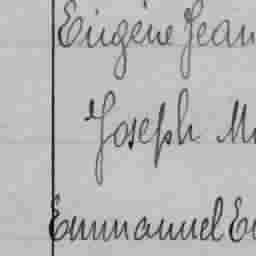 Eugène Jean
Joseph M
Emmanuel E